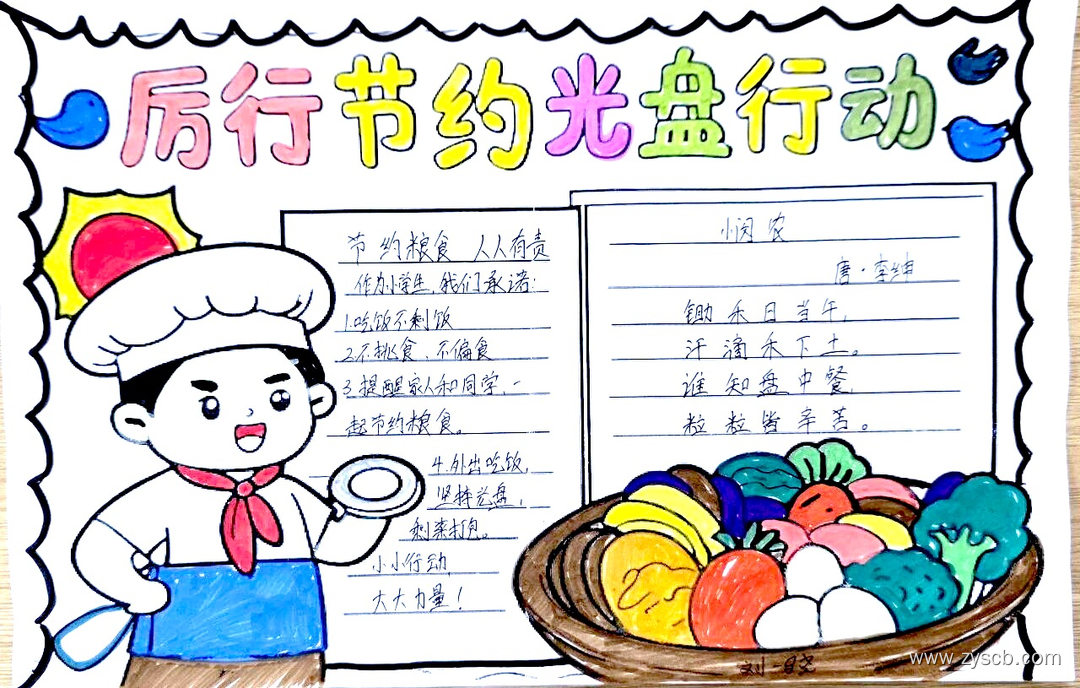 厉行节约光盘行动
节约粮食 人人有责
作为小学生,我们承诺:
1.吃饭不剩饭
2.不挑食、不偏食
3.提醒家人和同学,一
起节约粮食。
4.外出吃饭,
坚持光盘,
剩菜打包。
小小行动,
大大力量!
悯农
唐·李绅
锄禾日当午,
汗滴禾下土。
谁知盘中餐,
粒粒皆辛苦。
www.zyscb.com